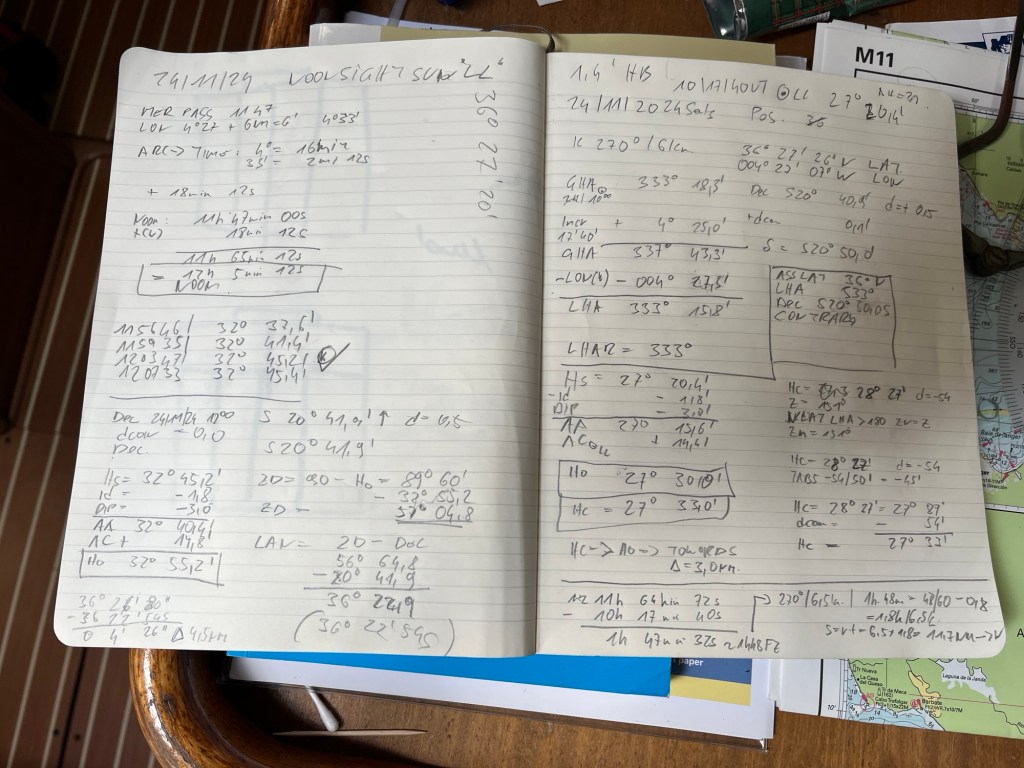 24/11/24 NOONSIGHT SUN "LL"
36° 27' 20'
MER PASS 11 47
LON 4°27 + 6nm=6' 4°33'
ARC-> TIME: 4° = 16min
33' = 2mi 12s
+ 18min 12s
NOON: 11h 47min 00s
18min 12s
11h 65min 12s
= 12h 5min 12s
NOON
115646 32° 37,6'
115935 32° 41,4'
120347 32° 45,2'
120733 32° 45,4'
Dec 24/11/24 1200 S 20° 41,9' ↑ d= 0,5
dcorr = 0,0
DEC. S20° 41,9'
Hs= 32° 45,2'
Id = -1,8
DIP= -3,0
AA 32° 40,4'
AC + 14,8
Ho 32° 55,2'
ZD= 90 - Ho = 89° 60'
- 32° 55,2
ZD = 57° 04,8
LAN= ZD - Dec
56° 64,8
- 20° 41,9
36° 22,9
(36° 22' 54s)
36° 26' 80"
-36 22' 54s
0 4' 26" Δ 4,5nm
1,4' HB 10/17/40UT LL 27° 20,4'
24/11/2024 Pos:
K 270°/6kn
36° 27' 26" N LAT
004° 27' 07" W LON
GHA 333° 18,3' Dec S20° 40,9' d=+0,5
24/11 1000
Incr + 4° 25,0' +dcorr 0,1'
17'40"
GHA 337° 43,3' S = S20° 50,
-LON(W) - 004° 27,5'
LHA 333° 15,8'
ASS LAT 36° N
LHA 333°
DEC S20°
CONTRARY
LHAR = 333°
Hs = 27° 20,4'
-Id - 1,8'
DIP - 3,0'
AA 27° 15,6'
AC + 14,6'
Ho 27° 30,0'
Hc = 27° 33,0'
Hc -> Ho -> TOWARDS
Δ = 3,0nm.
Hc= 28° 27' d=-54
Z= 151°
NLAT LHA >180 Zn=Z
Zn = 151°
Hc= 28° 27' d= -54
TAB5 -54/50' = -45'
Hc= 28° 27' = 27° 87'
dcorr = - 54'
Hc = 27° 33'
11h 64min 72s
- 10h 17min 40s
1h 47min 32s ≈ 1h48
270°/6,5k. 1h 48m = 48/60 = 0,8
= 1,8h/6,5k.
s=v·t = 6,5·1,8 = 11,7NM -> W
M11
paper
Tr Nueva
La Casa
del Queso
Ts de Meca
(162)
Cabo Trafalgar
Barbate
Laguna de la Janda
10'